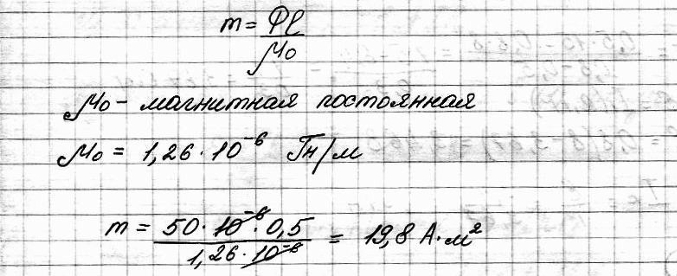 m = Фℓ / μ₀
μ₀ - магнитная постоянная
μ₀ = 1,26 · 10⁻⁶ Гн/м
m = 50 · 10⁻⁶ · 0,5 / 1,26 · 10⁻⁶ = 19,8 А·м²